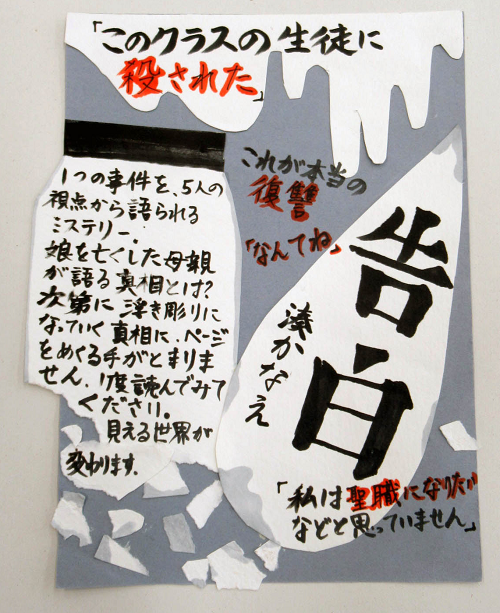 「このクラスの生徒に
殺された」
1つの事件を、5人の
視点から語られる
ミステリー。
娘を亡くした母親
が語る真相とは?
次第に浮き彫りに
なっていく真相に、ページ
をめくる手がとまりま
せん。1度読んでみて
ください。
見える世界が
変わります。
これが本当の
復讐
「なんてね」
告白
湊かなえ
「私は聖職になりたい
などと思っていません」